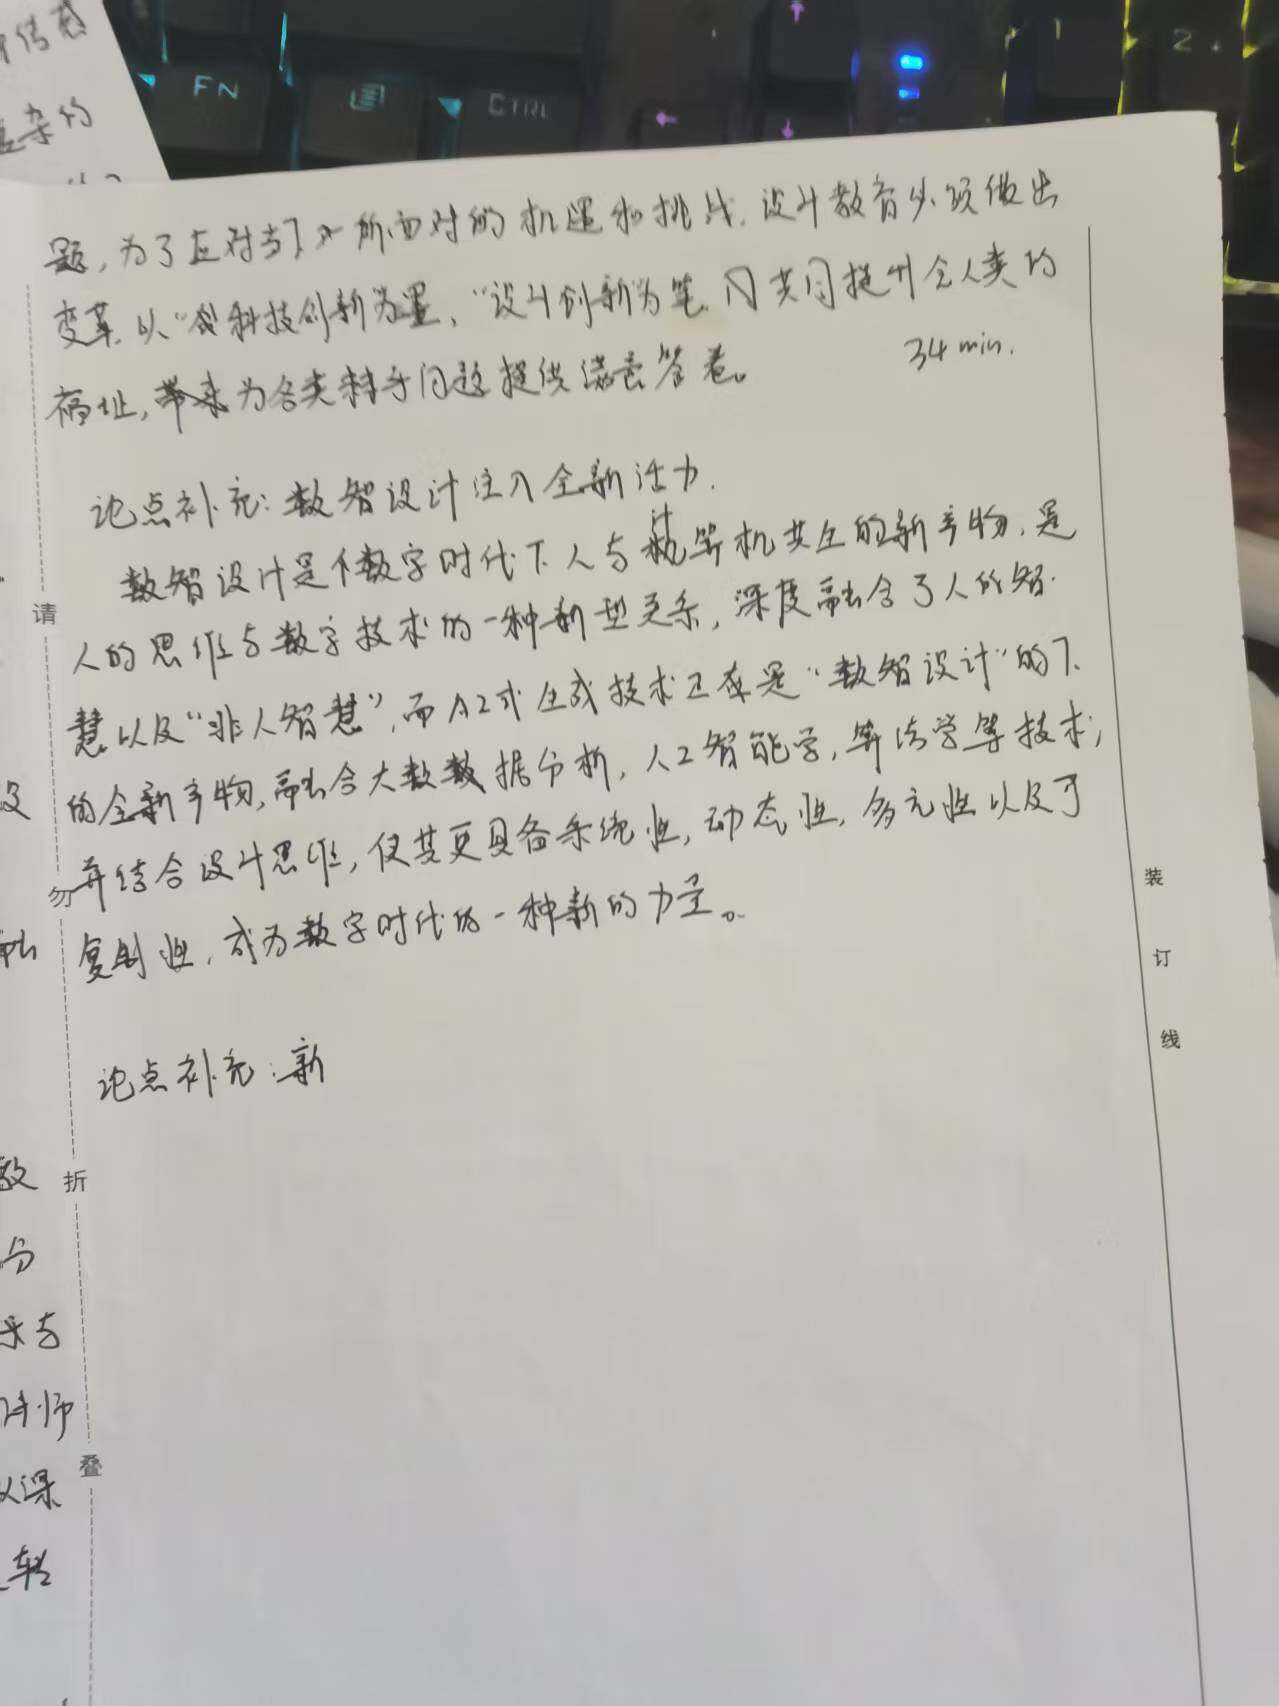 中传感
复杂的
FN
CTRL
2
题,为了应对当下所面对的机遇和挑战,设计教育必须做出
变革,以“科技创新为墨,“设计创新为笔,共同提升全人类的
福祉,为各类棘手问题提供满意答卷。
34 min.
论点补充:数智设计注入全新活力.
数智设计是个数字时代下人与计算机共生的新产物,是
人的思维与数字技术的一种新型关系,深度融合了人的智
慧以及“非人智慧”,而AI式生成技术正是“数智设计”的下
的全新产物,融合大数据分析,人工智能学,算法学等技术,
并结合设计思维,使其更具备系统性,动态性,多元性以及可
复制性,成为数字时代的一种新的力量。
论点补充:新
请
勿
折
叠
装
订
线
融
教
分
采与
讲师
以深
转